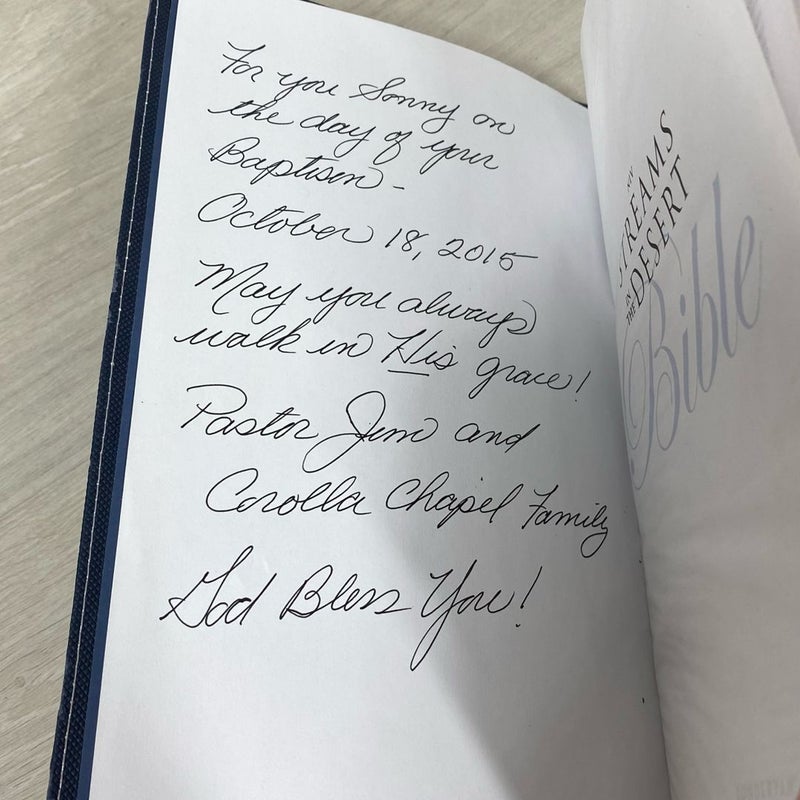 For you Sonny on
the day of your
Baptism -
October 18, 2015
May you always
walk in His grace!
Pastor Jim and
Corolla Chapel Family
God Bless You!
NIV
STREAMS
IN
THE DESERT
Bible